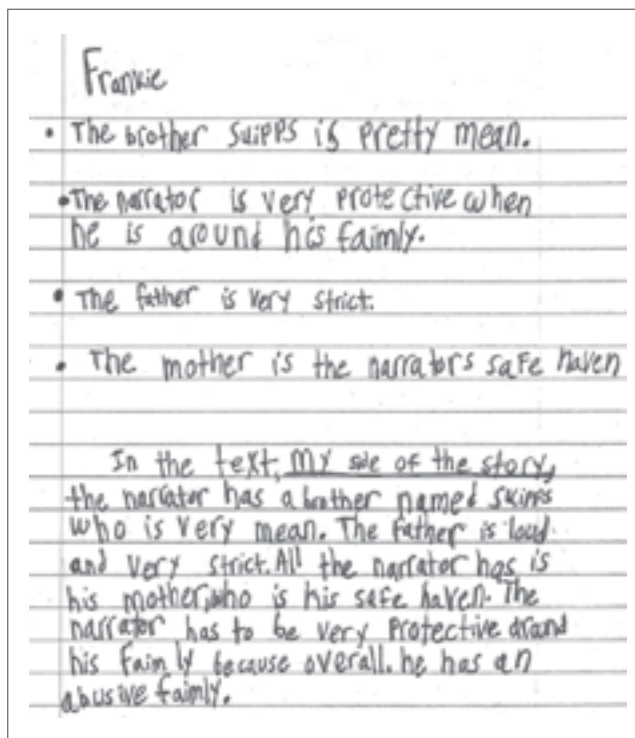 Frankie
• The brother Skipps is pretty mean.
• The narrator is very protective when
he is around his faimly.
• The father is very strict.
• The mother is the narrators safe haven
In the text, my side of the story,
the narrator has a brother named Skipps
who is very mean. The father is loud
and very strict. All the narrator has is
his mother, who is his safe haven. The
narrator has to be very protective around
his faimly because overall. he has an
abusive faimly.